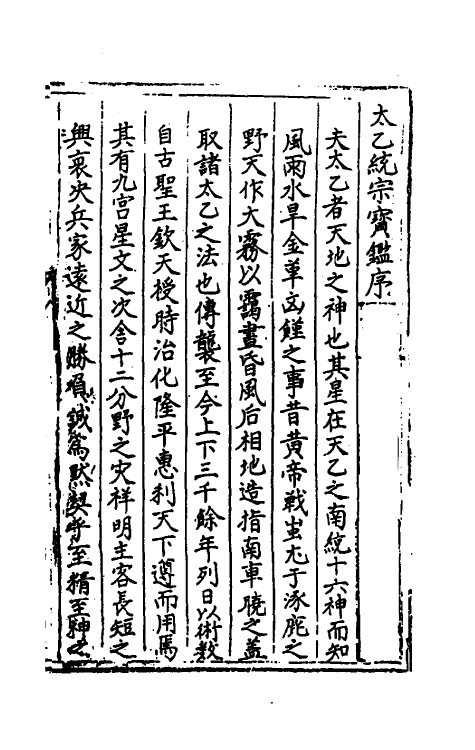 太乙統宗寶鑑序
夫太乙者天地之神也其星在天乙之南統十六神而知
風雨水旱金革凶饉之事昔黃帝戰蚩尤于涿鹿之
野天作大霧以靄晝昏風后相地造指南車曉之蓋
取諸太乙之法也傳襲至今上下三千餘年列日以術教
自古聖王欽天授時治化隆平惠利天下遵而用焉
其有九宮星文之次舍十二分野之灾祥明主客長短之
興衰决兵家遠近之勝負鉞篤默契乎至精至神之